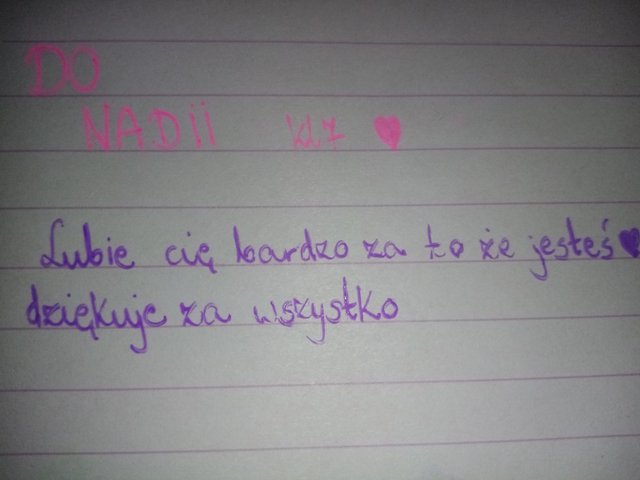 DO
NADII kl 7 ♥
Lubie cię bardzo za to że jesteś ♥
dziękuje za wszystko